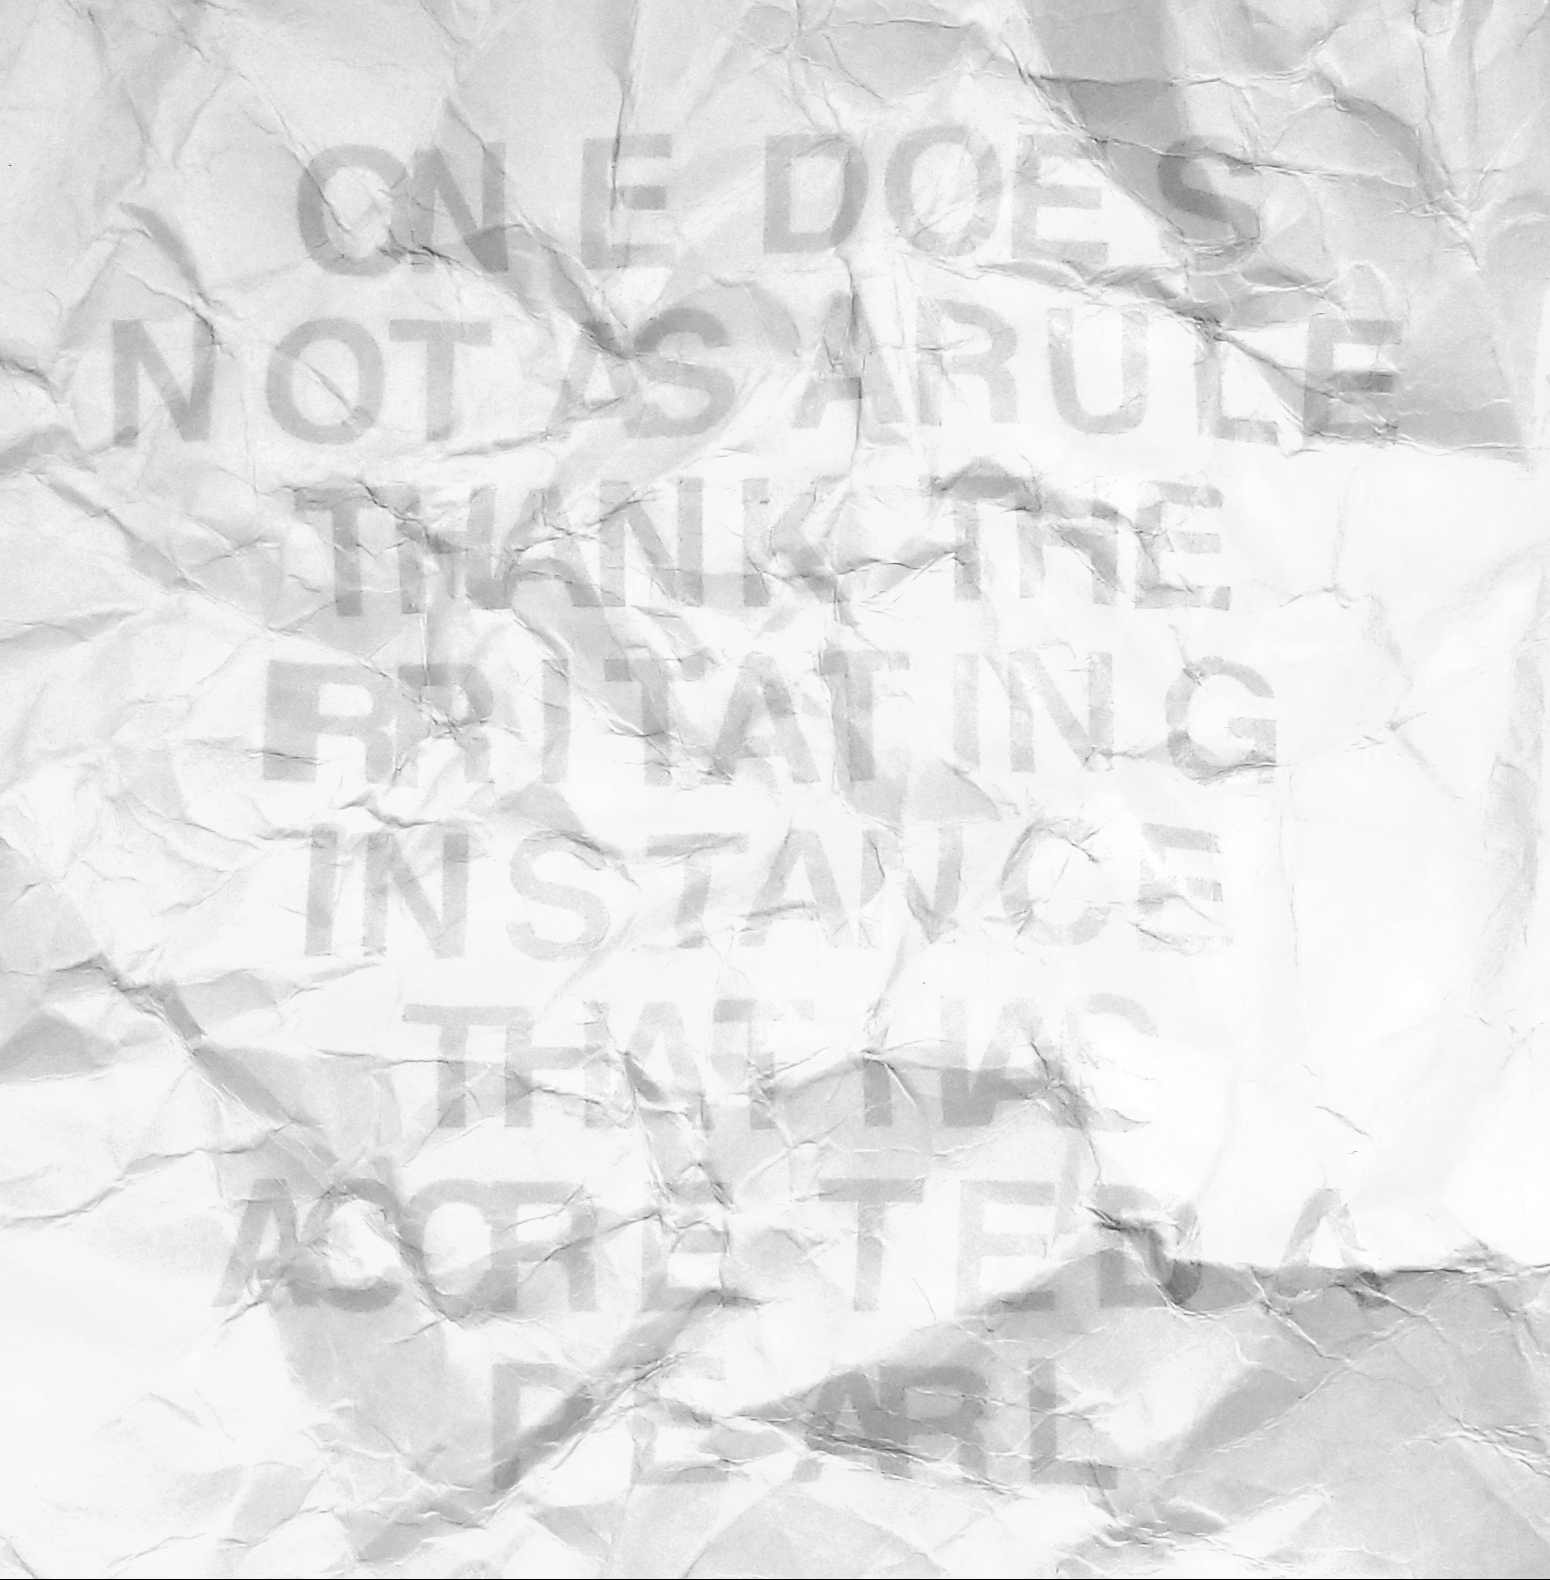 ONE DOES
NOT AS A RULE
THANK THE
IRRITATING
INSTANCE
THAT HAS
ACCRETED A
PEARL